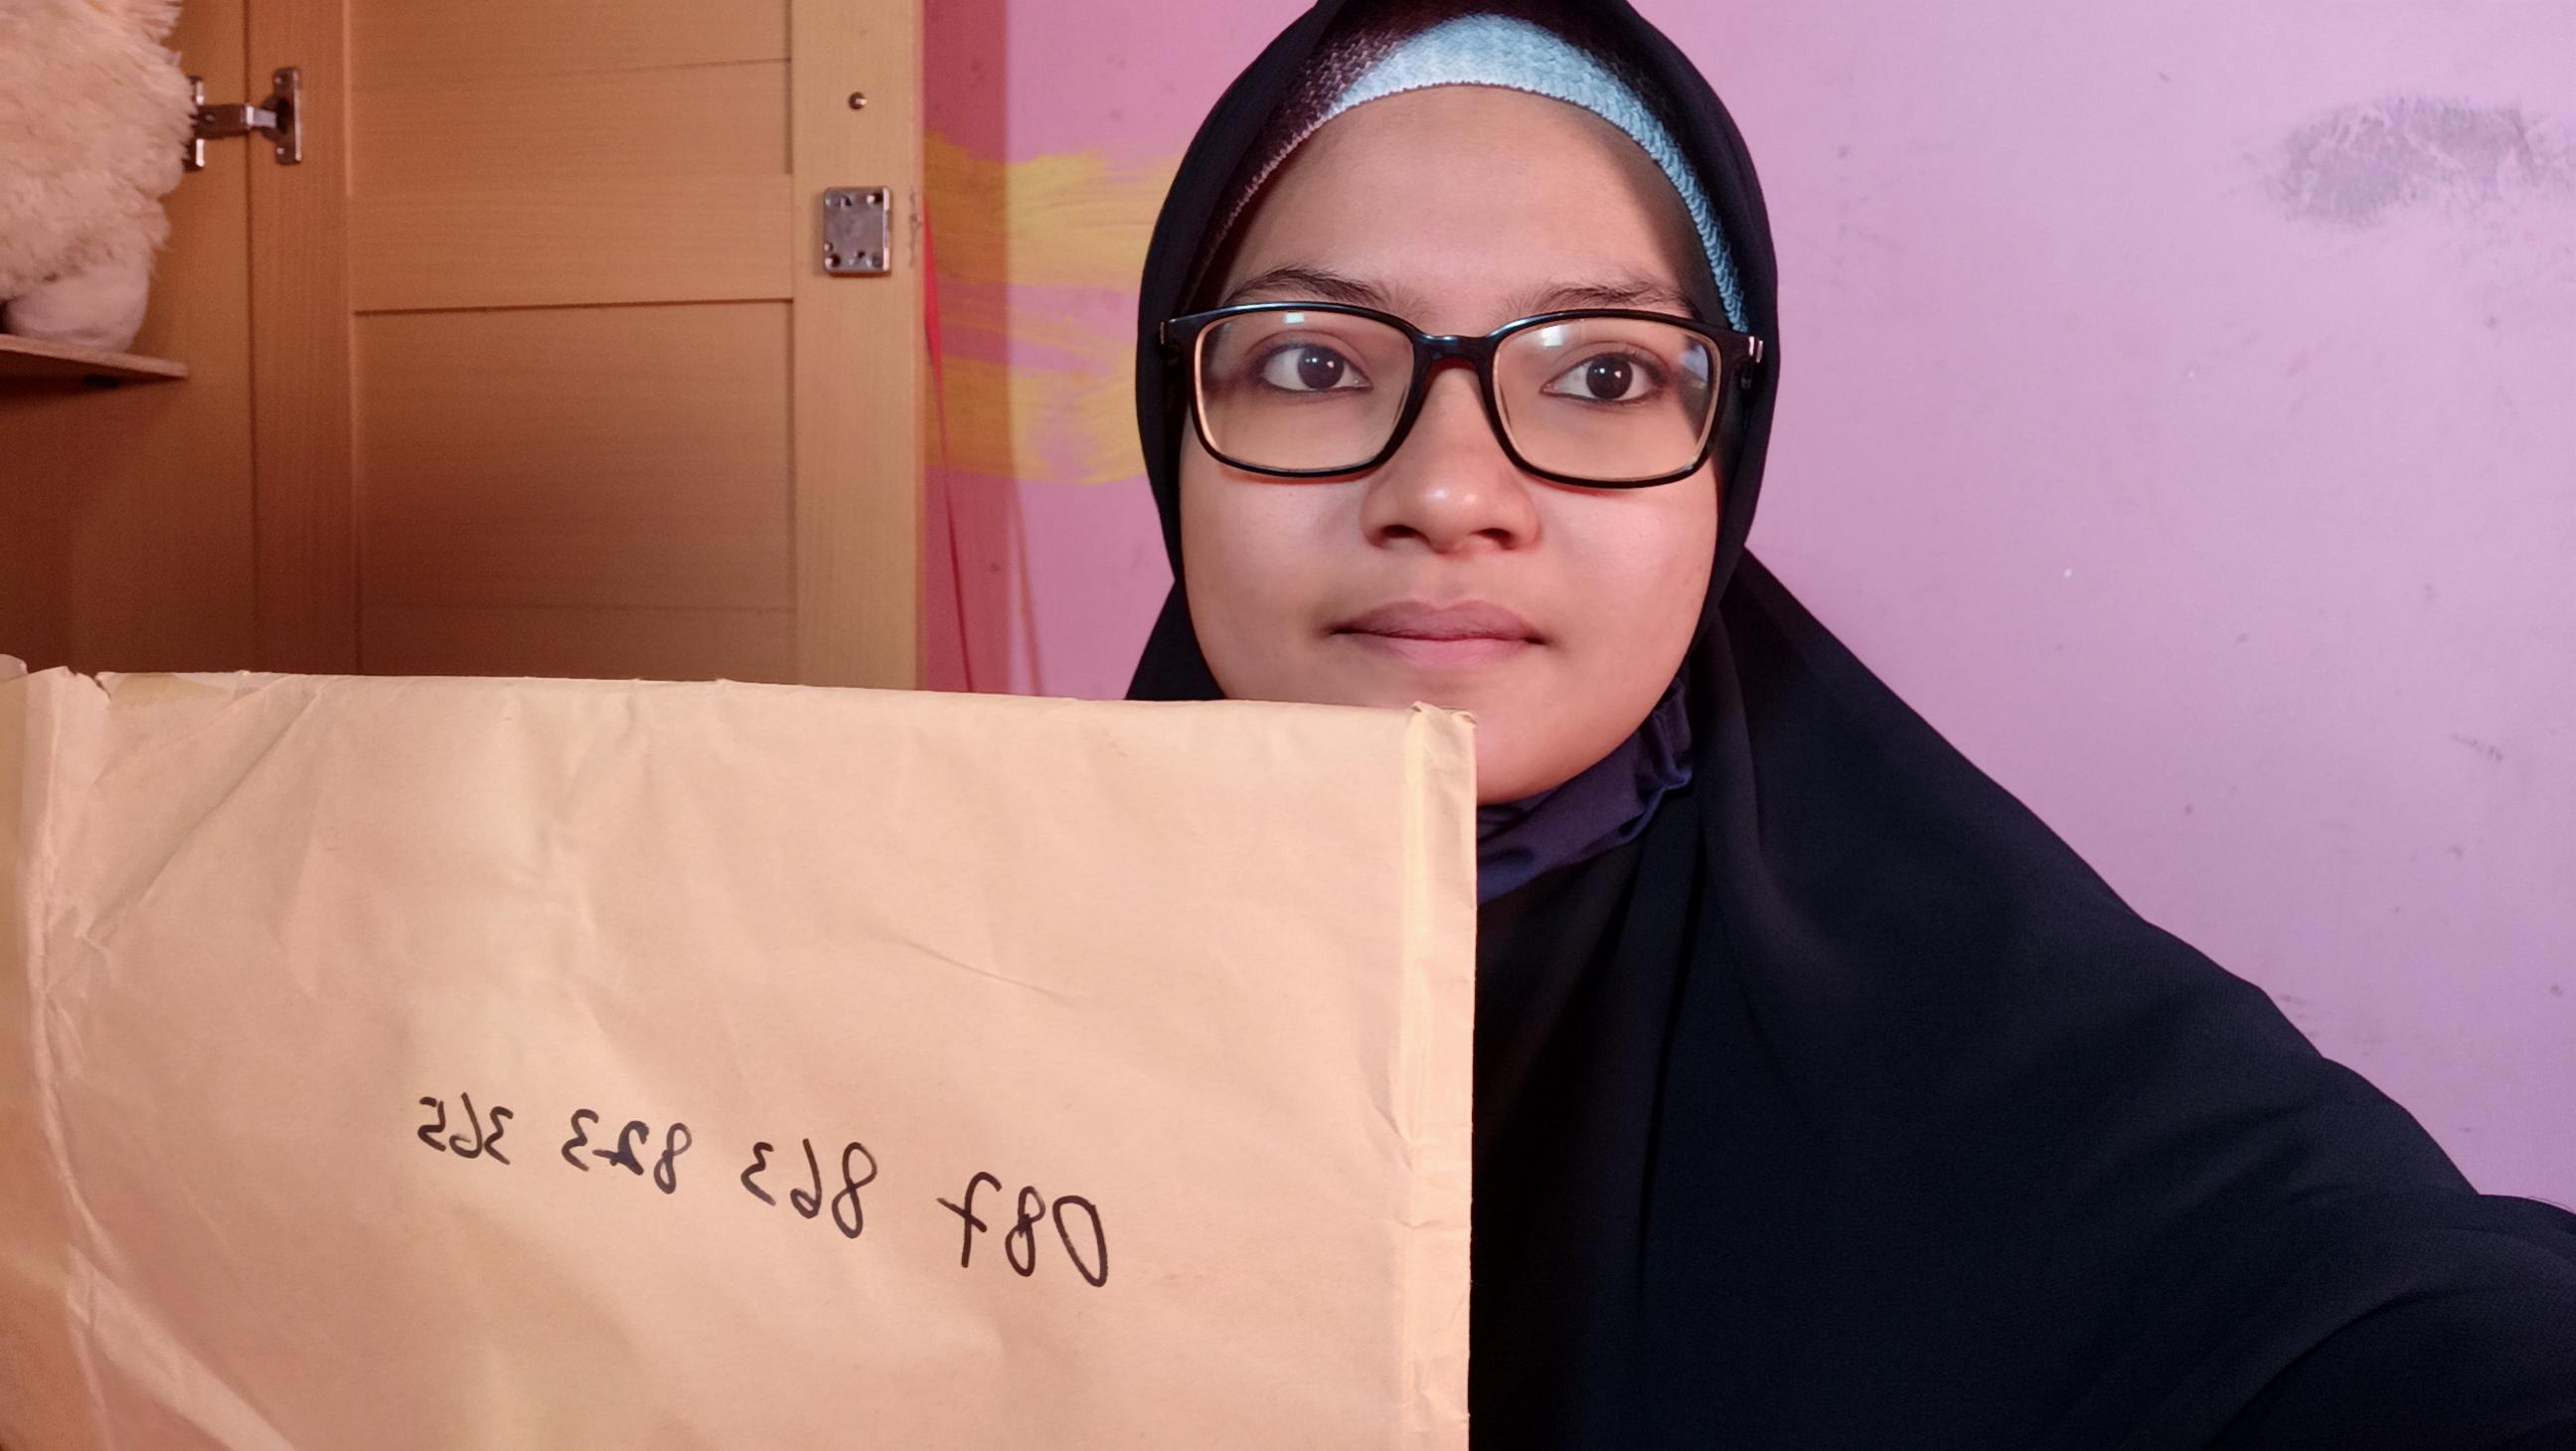 087 863 823 365